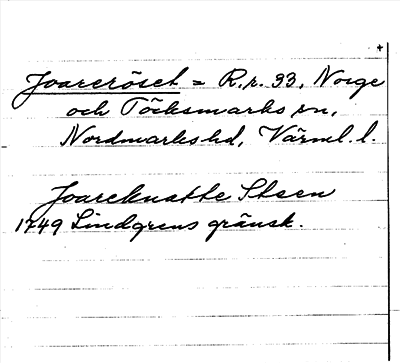 +
Joareröset = R.r. 33, Norge
och Töcksmarks sn,
Nordmarks hd, Värml. l.
Joareknatte Steen
1749 Lindgrens gränsk.